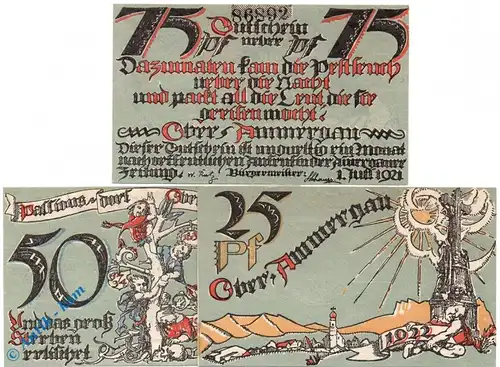 86892
75 Gutschein 75
Pf ueber Pf
Dazumalen kam die Pestseuch
ueber die Nacht
und packt all die Leut die sie
greifen mocht.
Ober-Ammergau
Dieser Gutschein ist ungueltig ein Monat
nach oeffentlichem Aufruf in der Ammergauer
Zeitung. Bürgermeister: 1. Juli 1921
Passions-dorf Ober
50
Und das groß
Sterben
erlischet
25
Pf
Ober-Ammergau
1922